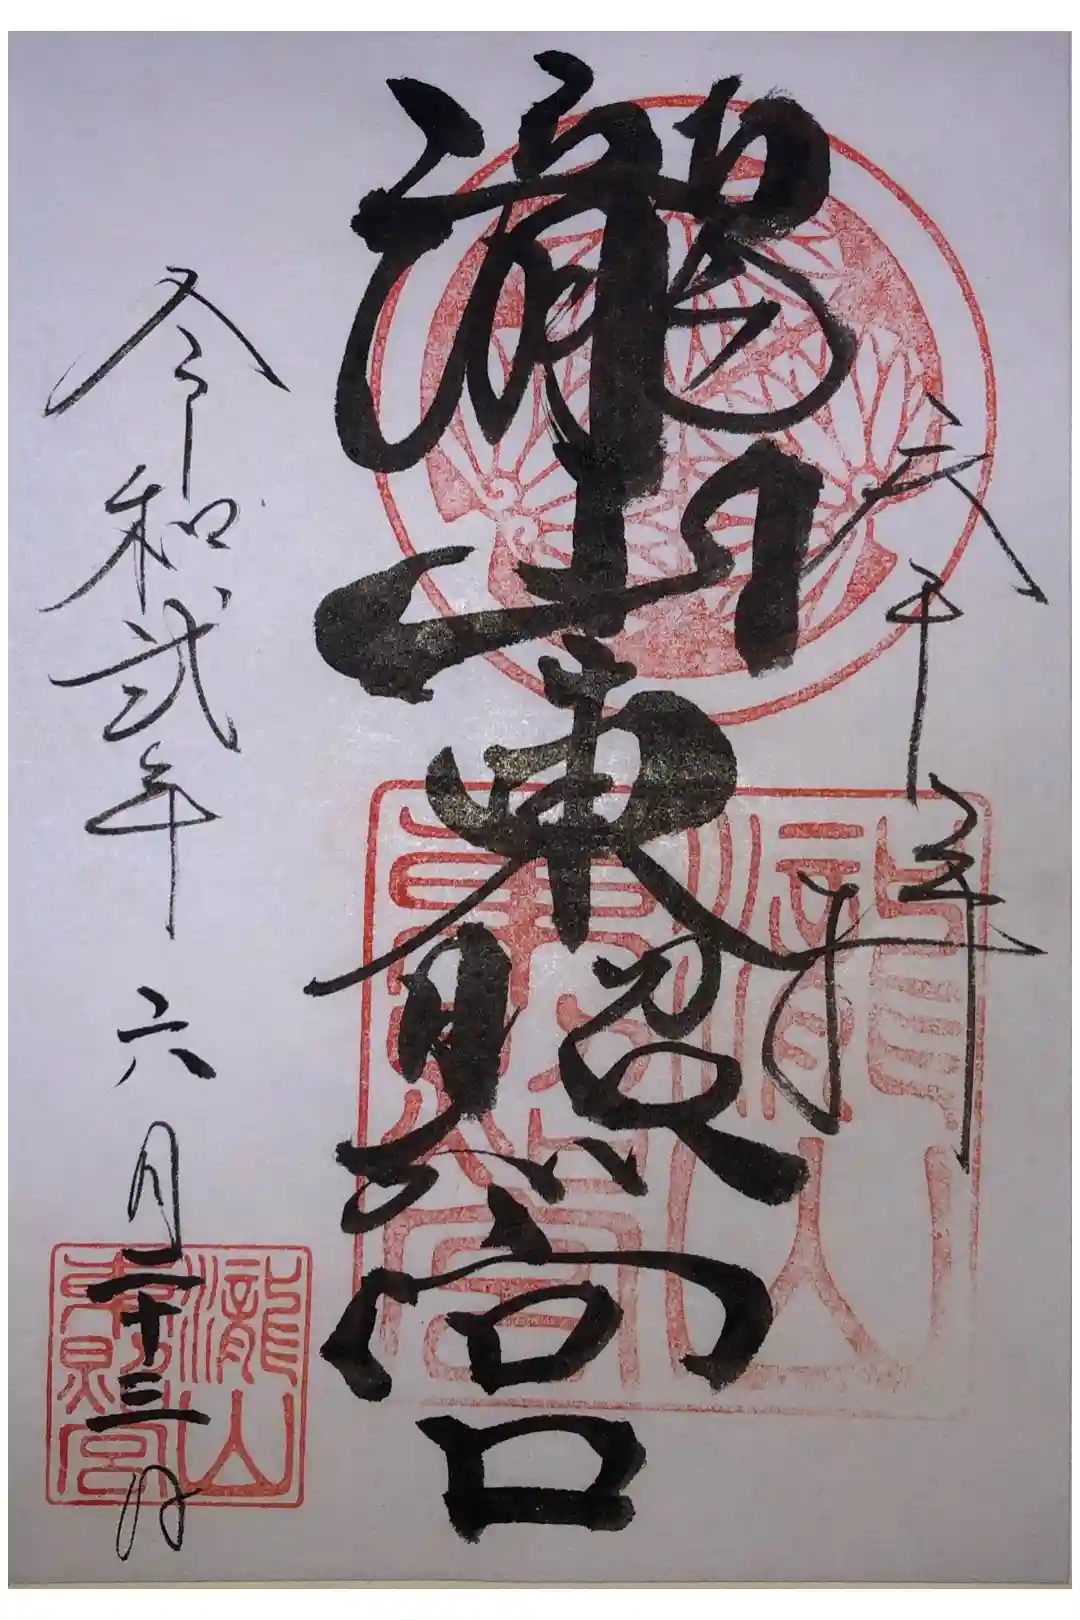 拝
瀧山東照宮
令和弐年六月二十三日
瀧山
東照宮
瀧山
東照宮